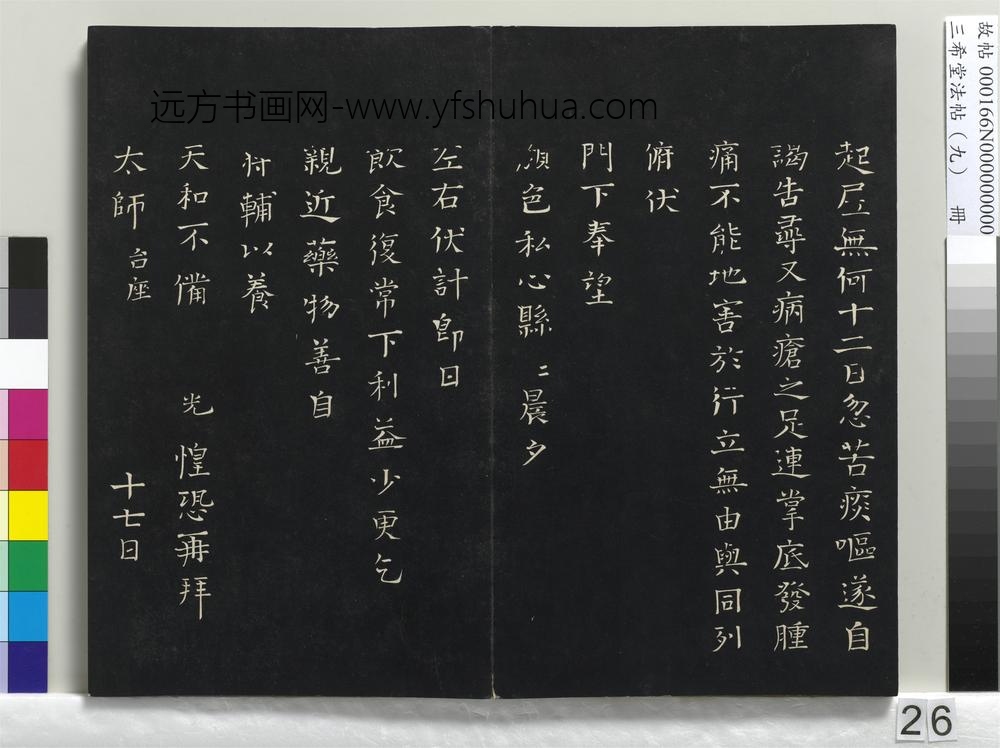 起居無何十二日忽苦痰嘔遂自
謁告尋又病瘡之足連掌底發腫
痛不能地害於行立無由與同列
俯伏
門下奉望
顏色私心縣〻晨夕
左右伏計即日
飲食復常下利益少更乞
親近藥物善自
將輔以養
天和不備 光惶恐再拜
太師台座 十七日
远方书画网-www.yfshuhua.com
故帖 000166N000000000
三希堂法帖（九） 冊
26